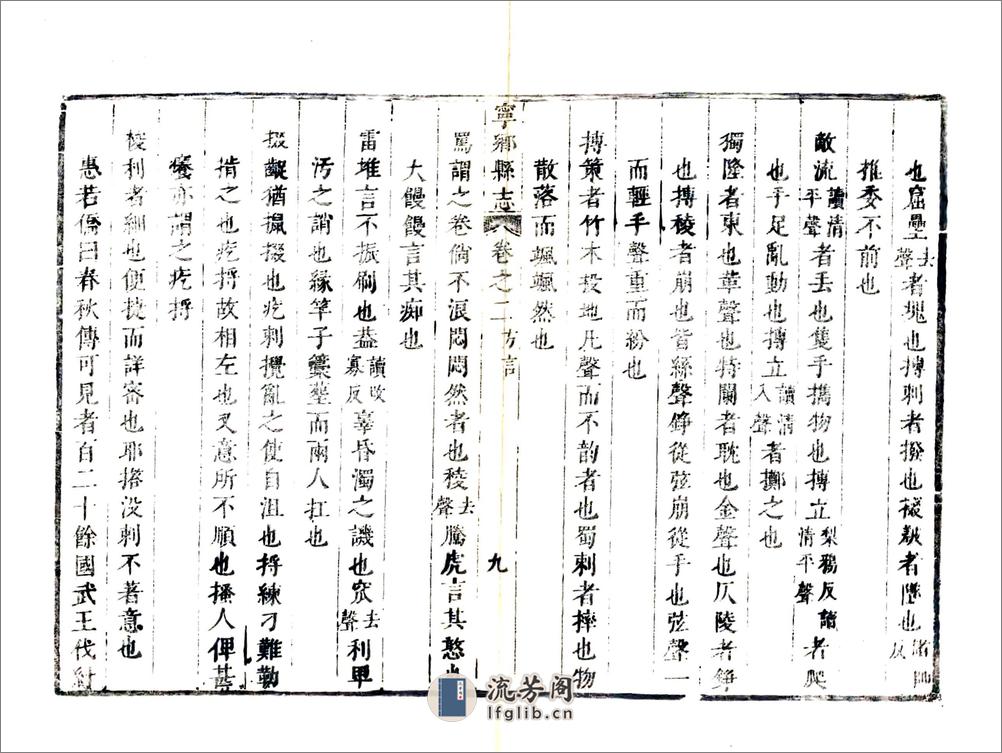 也窟壘去聲者塊也搏刺者撥也者墜也
推委不前也
敵流讀清平聲者丟也隻手攜物也搏立梨鴉反讀清平聲者爬
也手足亂動也搏立讀清入聲者擲之也
獨隆者東也革聲也特闌者耽也金聲也仄陵者錚
也搏稜者崩也皆絲聲錚從弦崩從手也弦聲一
而輕手聲重而紛也
搏策者竹木投地凡聲而不韵者也蜀刺者摔也物
散落而颯颯然也
寧鄉縣志
卷之二
方言
九
罵謂之卷倘不浪悶悶然者也稜去聲騰虎言其憨也
大饅饅言其痴也
雷堆言不振刷也盍讀改寡反辜昏濁之譏也窊去聲利里
汚之誚也緣竿子囊壑而兩人扛也
掇齪猶掇也疙刺攪亂之使自沮也捋練刁難勒
措之也疙捋故相左也叉意所不順也搔人俾甚
癢亦謂之疙捋
梭利者細也便捷而詳審也耶撘没剌不著意也
惠若僑曰春秋傳可見者百二十餘國武王伐紂
流芳阁
lfglib.cn